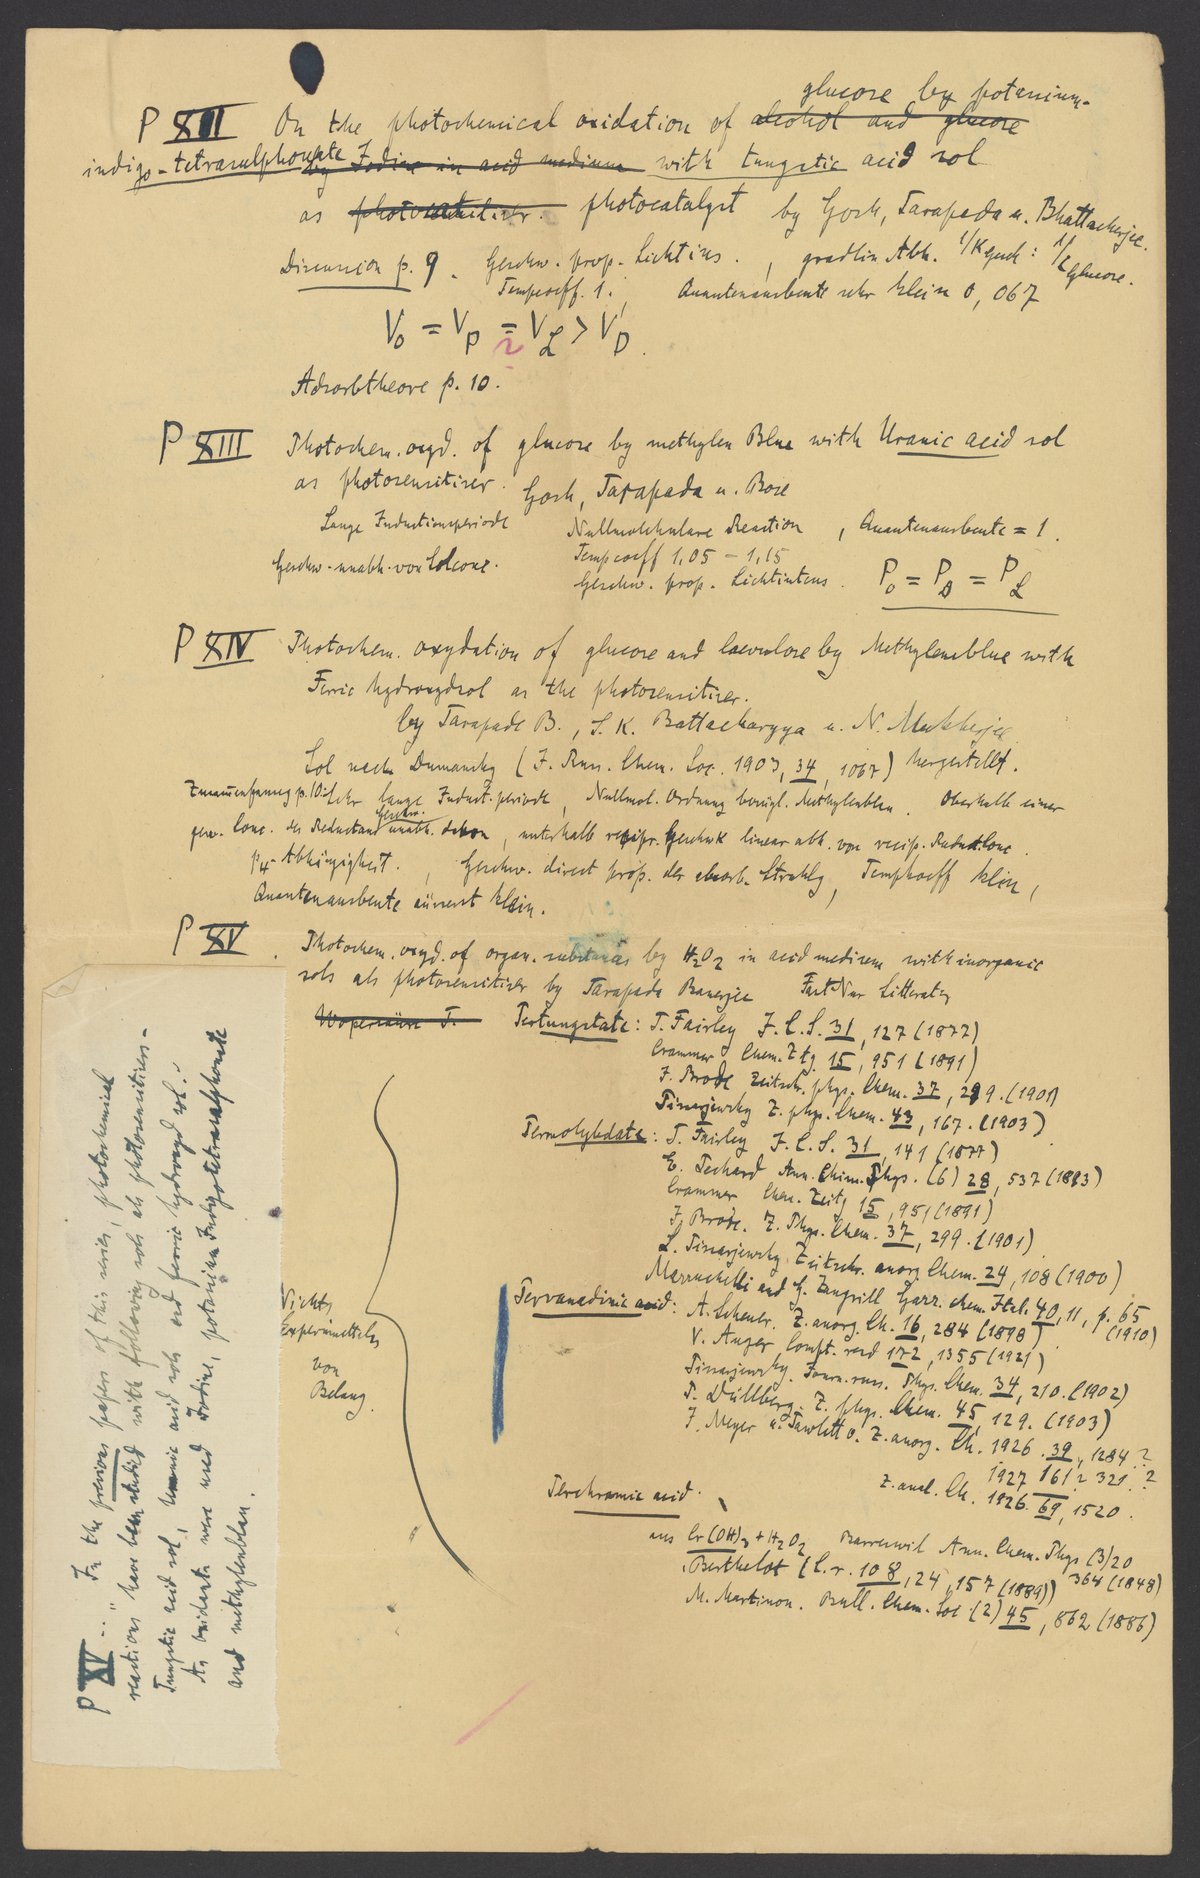 glucose by potassium-
P XII On the photochemical oxidation of alcohol and glucose
indigo-tetrasulphonate by Iodine in acid medium with tungstic acid sol
as photosensitiser. photocatalyst by Gosh, Tarapada u. Bhattacherjee.
Discussion p. 9. Geschw. prop. Lichtins. , gradlin Abh. 1/K gesch: 1/c glucose.
Tempcoeff. 1. , Quantenausbeute sehr klein 0,067
V0 = VP = VL > VD.
Adsorbtheore p. 10.
P XIII Photochem. oxyd. of glucose by methylen Blue with Uranic acid sol
as photosensitiser. Gosh, Tarapada u. Bose
Lange Inductionsperiode Nullmolekulare Reaction , Quantenausbeute = 1.
Geschw. unabh. von Solconc. Tempcoeff 1,05 – 1,15
Geschw. prop. Lichtintens. P0 = PD = PL
P XIV Photochem. oxydation of glucose and laevulose by Methyleneblue with
Ferric hydroxydsol as the photosensitiser.
by Tarapade B., S. K. Battacharyya u. N. Mukherjee
Sol nach Dumansky (J. Russ. Chem. Soc. 1903, 34, 1067) hergestellt.
Zusammenfassung p. 10: Sehr lange Induct. periode, Nullmol. Ordnung bezügl. Methylenblau. Oberhalb einer
gew. Conc. des Reductans Geschw. unabh. davon, unterhalb recipr. Geschwk linear abh. von recip. Reduktconc.
pH-Abhängigkeit. , Geschw. direct prop. der absorb. Strahlg, Tempkoeff klein,
Quantenausbeute äusserst klein.
P XV. Photochem. oxyd. of organ. substances by H2O2 in acid medium with inorganic
sols als photosensitiser by Tarapada Banerjee Fast Nur Litteratur
Wopersäure T. Pertungstate: T. Fairley J. C. S. 31, 127 (1877)
Crammer Chem. Ztg. 15, 951 (1891)
J. Brode Zeitschr. phys. Chem. 37, 299. (1901)
Pissarjewsky Z. phys. Chem. 43, 167. (1903)
Permolybdate: T. Fairley J. C. S. 31, 141 (1877)
E. Pechard Ann. Chim. Phys. (6) 28, 537 (1893)
Crammer Chem. Zeitg 15, 951 (1891)
J. Brode. Z. Phys. Chem. 37, 299. (1901)
L. Pissarjewsky Zeitschr. anorg. Chem. 24, 108 (1900)
Mazzuchelli and G. Zangrilli Gazz. chem. Ital. 40, 11, p. 65
(1910)
Pervanadinic acid: A. Scheuer. Z. anorg. Ch. 16, 284 (1898)
V. Auger Compt. rend 172, 1355 (1921)
Pissarjewsky. Journ. russ. Phys. Chem. 34, 210. (1902)
P. Düllberg. Z. phys. Chem. 45, 129. (1903)
J. Meyer u. Pawletta. Z. anorg. Ch. 1926. 39, 1284 ?
1927 161? 321 ?
Z. anal. Ch. 1926. 69, 1520.
Nichts
Experimentelles
von
Belang
Perchromic acid.
aus Cr(OH)3 + H2O2 Barreswil Ann. Chem. Phys (3) 20
364 (1848)
Berthelot (C. r. 108, 24, 157 (1889))
M. Martinon. Bull. Chem. Soc (2) 45, 862 (1886)
P XV.. "In the previous papers of this series, photochemical
reactions have been studied with following sols als photosensitizers –
Tungstic acid sol, Uranic acid sols and ferric hydroxyd sol. –
As oxidants were used Iodine, potassium Indigotetrasulphonate
and methylenblau.